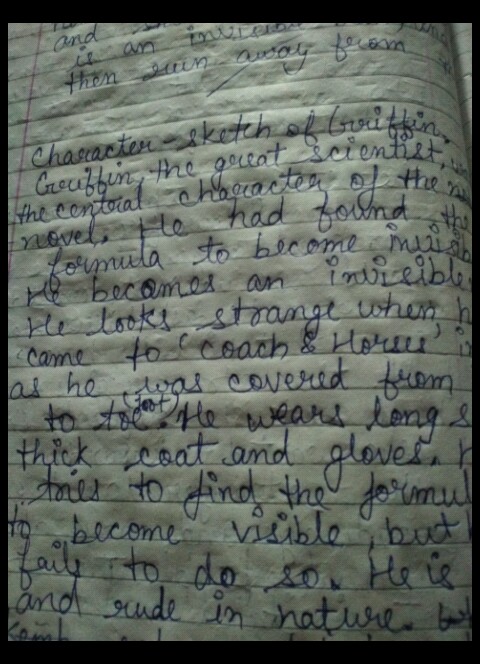 and
is an invisible
then ruin away from
Character-sketch of Griffin.
Griffin, the great scientist,
the central character of the
novel. He had found the
formula to become invisib
He becomes an invisible
He looks strange when h
came to 'Coach & Horses' in
as he was covered from
to toe (foot). He wears long s
thick coat and gloves. H
tries to find the formul
to become visible, but
fails to do so. He is
and rude in nature. but